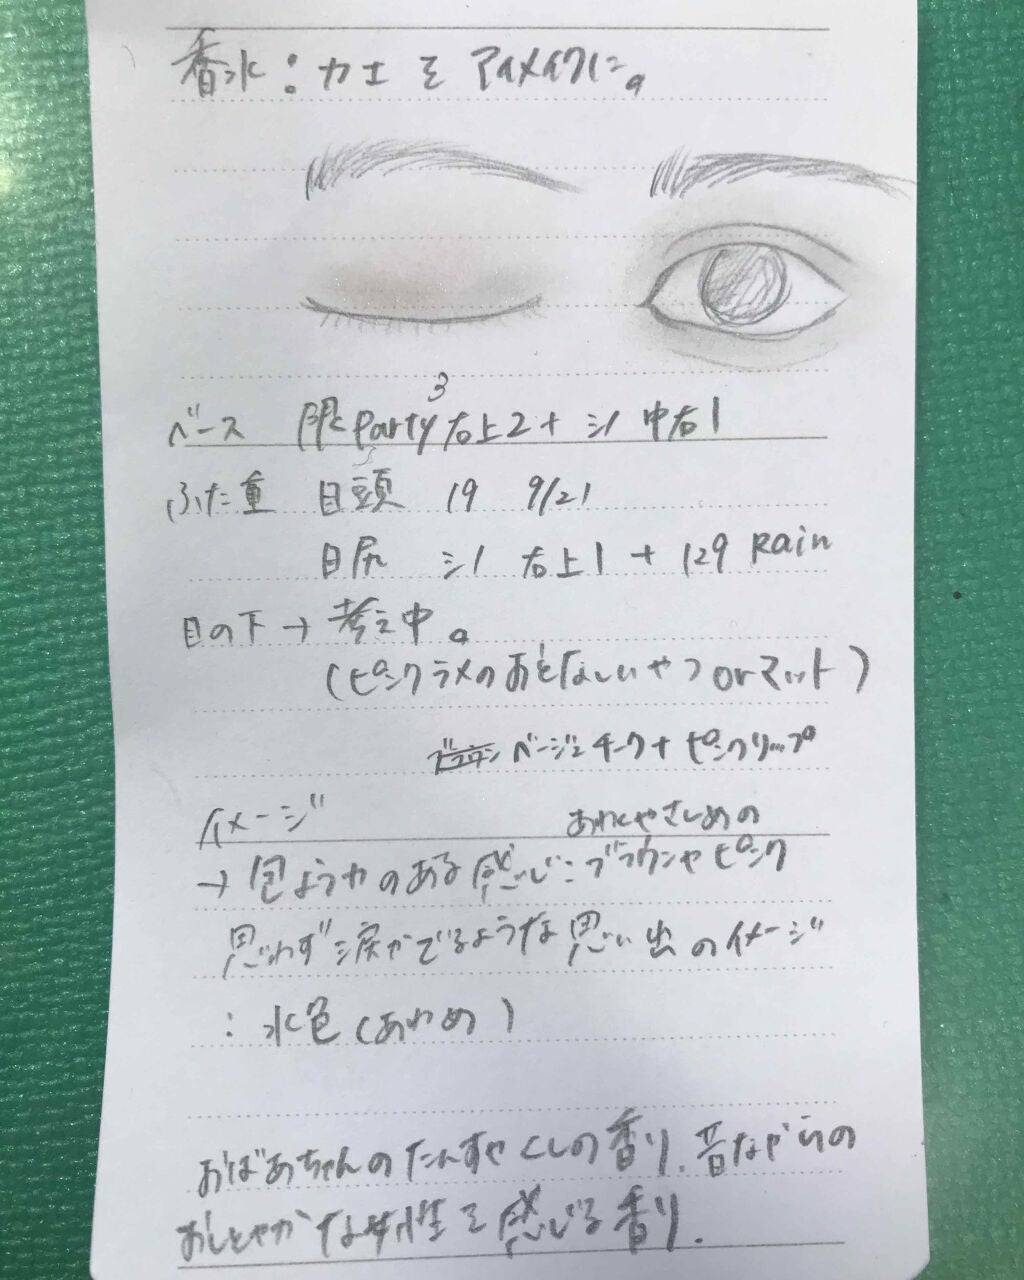 香水:カエをアイメイクに。
3
ベース 限Party右上2+シ1 中右1
ふた重 目頭 19 9/21
目尻 シ1 右上1 + 129 Rain
目の下→考え中。
(ピンクラメのおとなしいやつorマット)
ベージュチーク+ピンクリップ
イメージ
あわくやさしめの
→包ようカのある感じ:ブラウンやピンク
思わず涙がでるような思い出のイメージ
:水色(あわめ)
おばあちゃんのたんすやくしの香り.昔ながらの
おしとやかな女性を感じる香り.